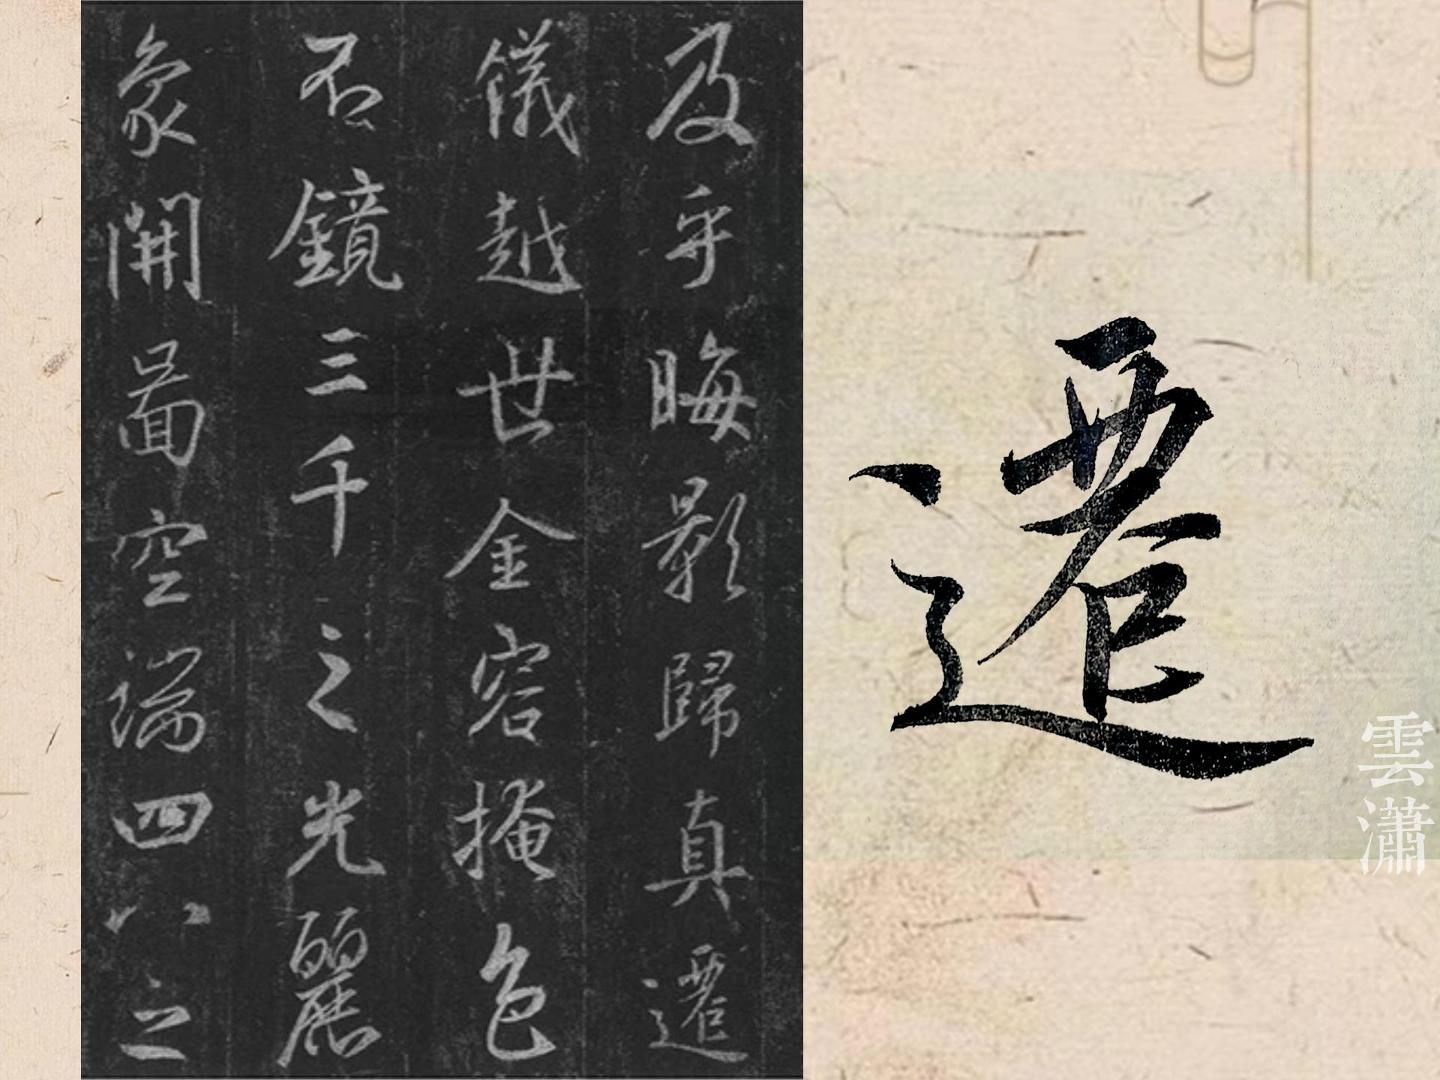 及乎晦影歸真遷
儀越世金容掩色
不鏡三千之光麗
象開圖空端四八之
遷
雲瀟